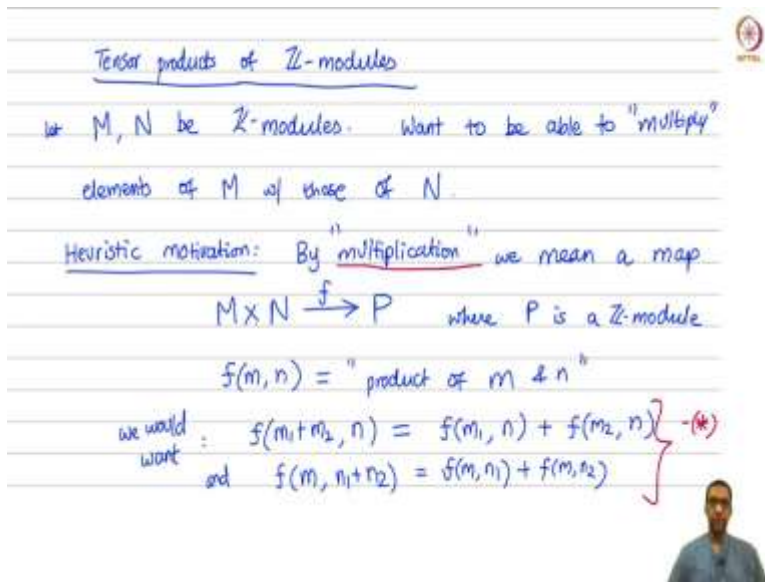 Tensor products of ℤ-modules
let M, N be ℤ-modules. Want to be able to "multiply"
elements of M w/ those of N.
Heuristic motivation: By "multiplication" we mean a map
M × N →f P where P is a ℤ-module
f(m, n) = "product of m & n"
we would want : f(m₁+m₂, n) = f(m₁, n) + f(m₂, n)
and f(m, n₁+n₂) = f(m, n₁) + f(m, n₂) } -(*)
NPTEL